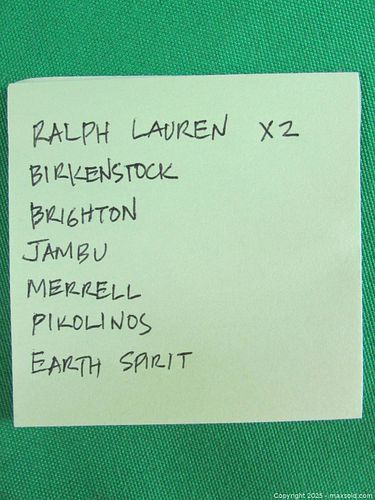 RALPH LAUREN X2
BIRKENSTOCK
BRIGHTON
JAMBU
MERRELL
PIKOLINOS
EARTH SPIRIT
Copyright 2025 - maxsold.com